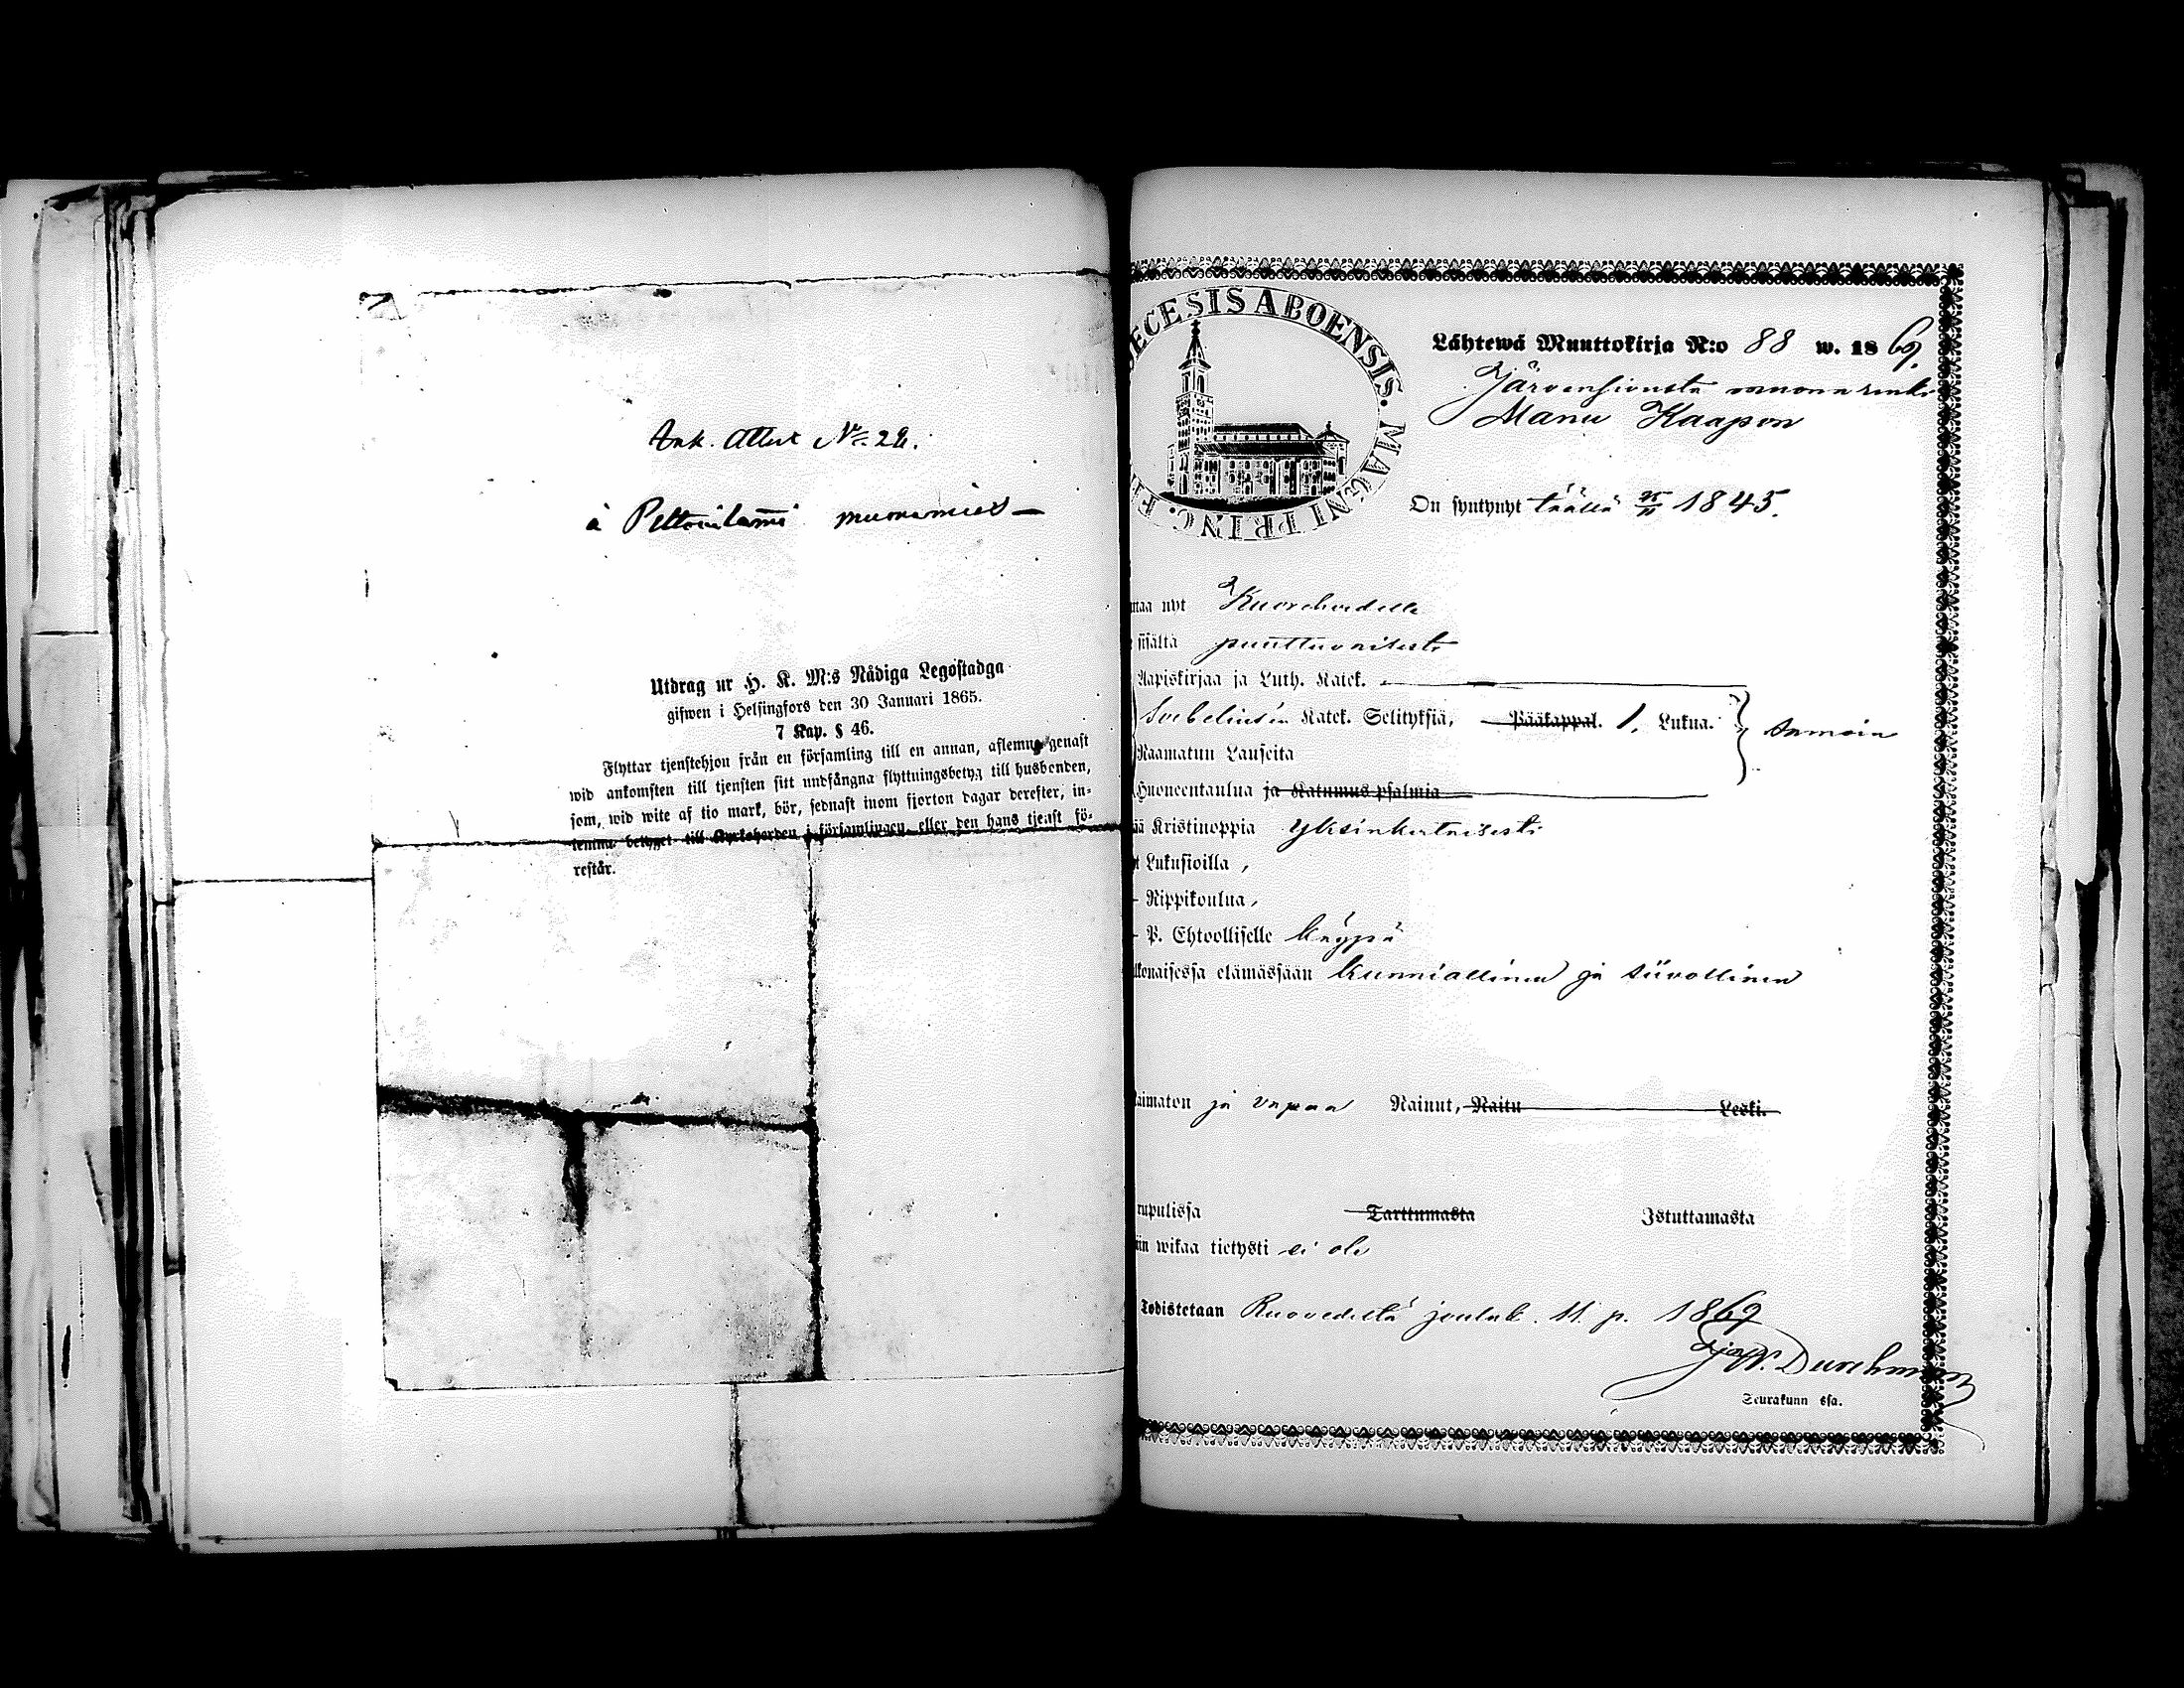 Ank. Attest No 28.
à Peltoinlami muonamies
Utdrag ur H. K. M:s Nådiga Legostadga
gifwen i Helsingfors den 30 Januari 1865.
7 Kap. § 46.
Flyttar tjenstehjon från en församling till en annan, aflemne genast
wid ankomsten till tjensten sitt undfångna flyttningsbetyg till husbonden,
som, wid wite af tio mark, bör, sednast inom fjorton dagar derefter, in-
lemna betyget till Kyrkoherden i församlingen eller den hans tjenst fö-
restår.
ECESIS ABOENSIS. MAGNI PRINC. F
Lähtewä Muuttokirja N:o 88 w. 1869
Järvensivusta
Manu Kaapon
On syntynyt täällä 1845.
nyt Kuorehvedelle
sisältä puuttuvaisesti
Aapiskirjaa ja Luth. Katek.
Svebeliusen Katek. Selityksiä, Pääkappal. 1. Lukua. samoin
Raamatun Lauseita
Huoneentaulua ja Katumus psalmia
Kristinoppia yksinkertaisesti
Lukusioilla,
Rippikoulua,
P. Ehtoolliselle käypä
elämässään kunniallinen ja siivollinen
ja vapaa Nainut, Naitu Leski.
rupulissa Tarttumasta Istuttamasta
wikaa tietysti ei ole
Todistetaan Ruovedeltä jouluk. 11 p. 1869
Durchman
Seurakunn ssa.